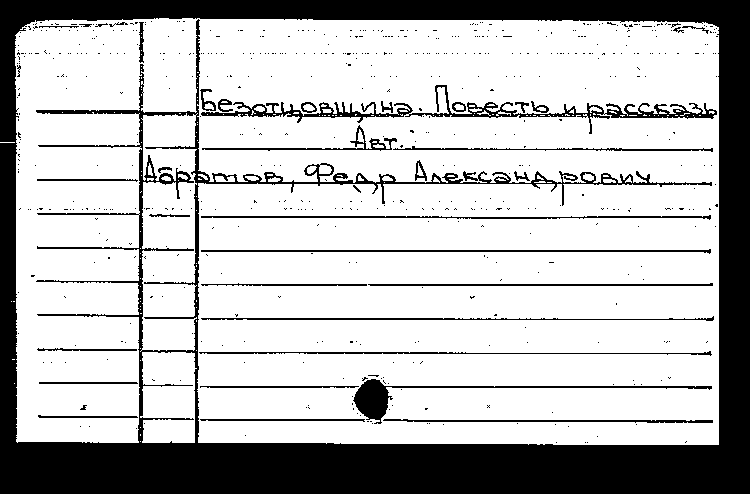 Безотцовщина. Повесть и рассказы
Авт.:
Абрамов, Федр Александрович.